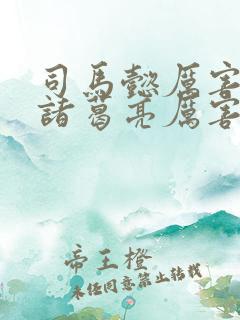 司馬懿厲害
諸葛亮厲害
帝王橙
未经同意禁止转载